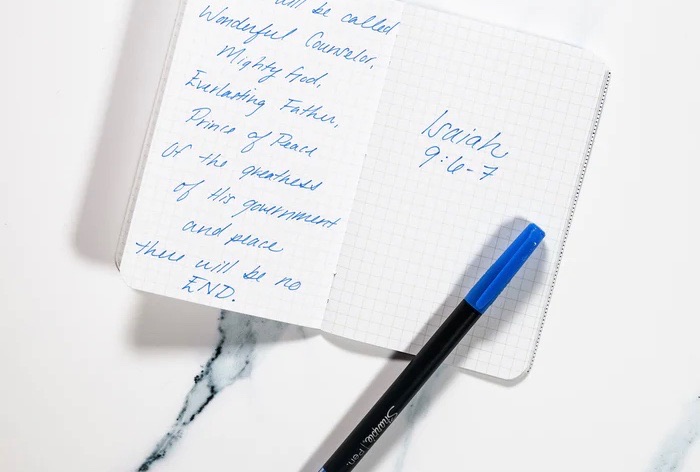 will be called
Wonderful Counselor,
Mighty God,
Everlasting Father,
Prince of Peace
Of the greatness
of His government
and peace
there will be no
END.
Isaiah
9:6-7
Sharpie. Pen.